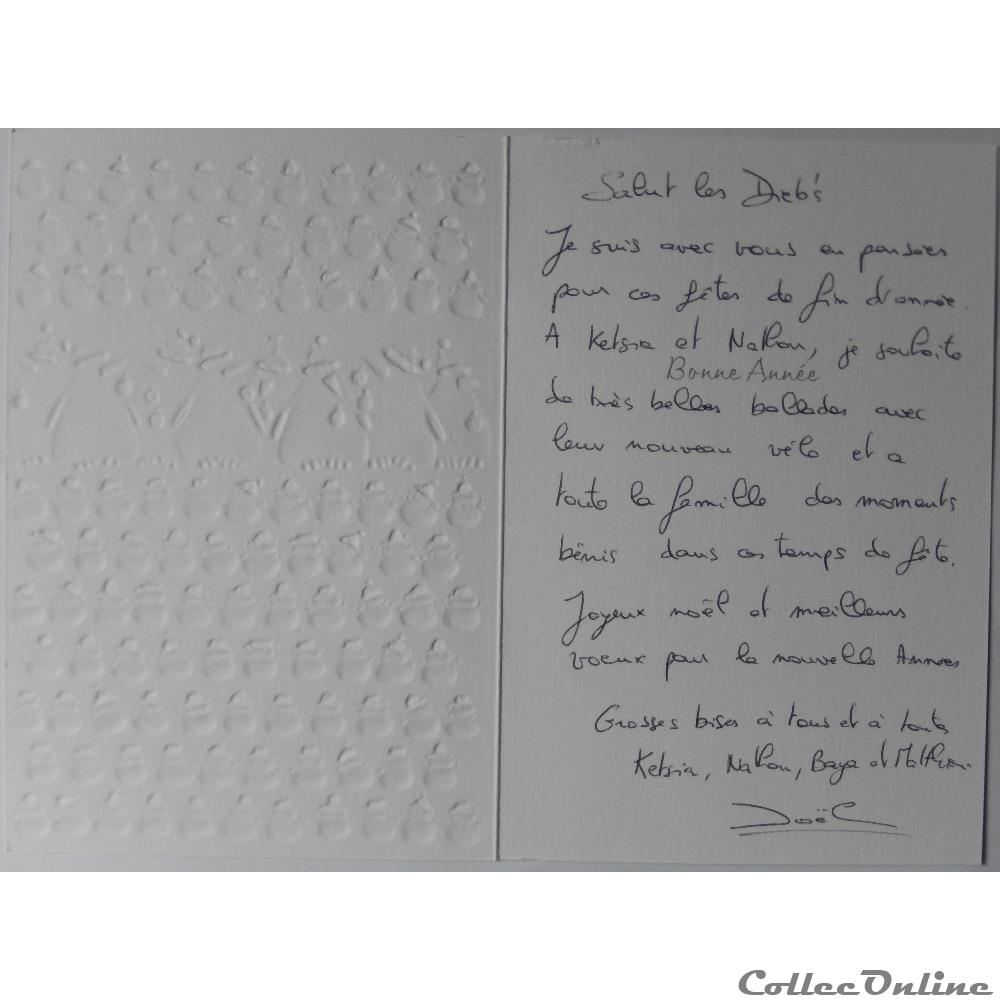 Salut les Dieb's
Je suis avec vous en pensées
pour ces fêtes de fin d'année.
A Ketsia et Nathan, je souhaite
Bonne Année
de très belles ballades avec
leur nouveau vélo et a
toute la famille des moments
bénis dans ces temps de fête.
Joyeux noël et meilleurs
voeux pour la nouvelle Année
Grosses bises à tous et à toutes
Ketsia, Nathan, Baya et Matthieu.
Joël
CollecOnline